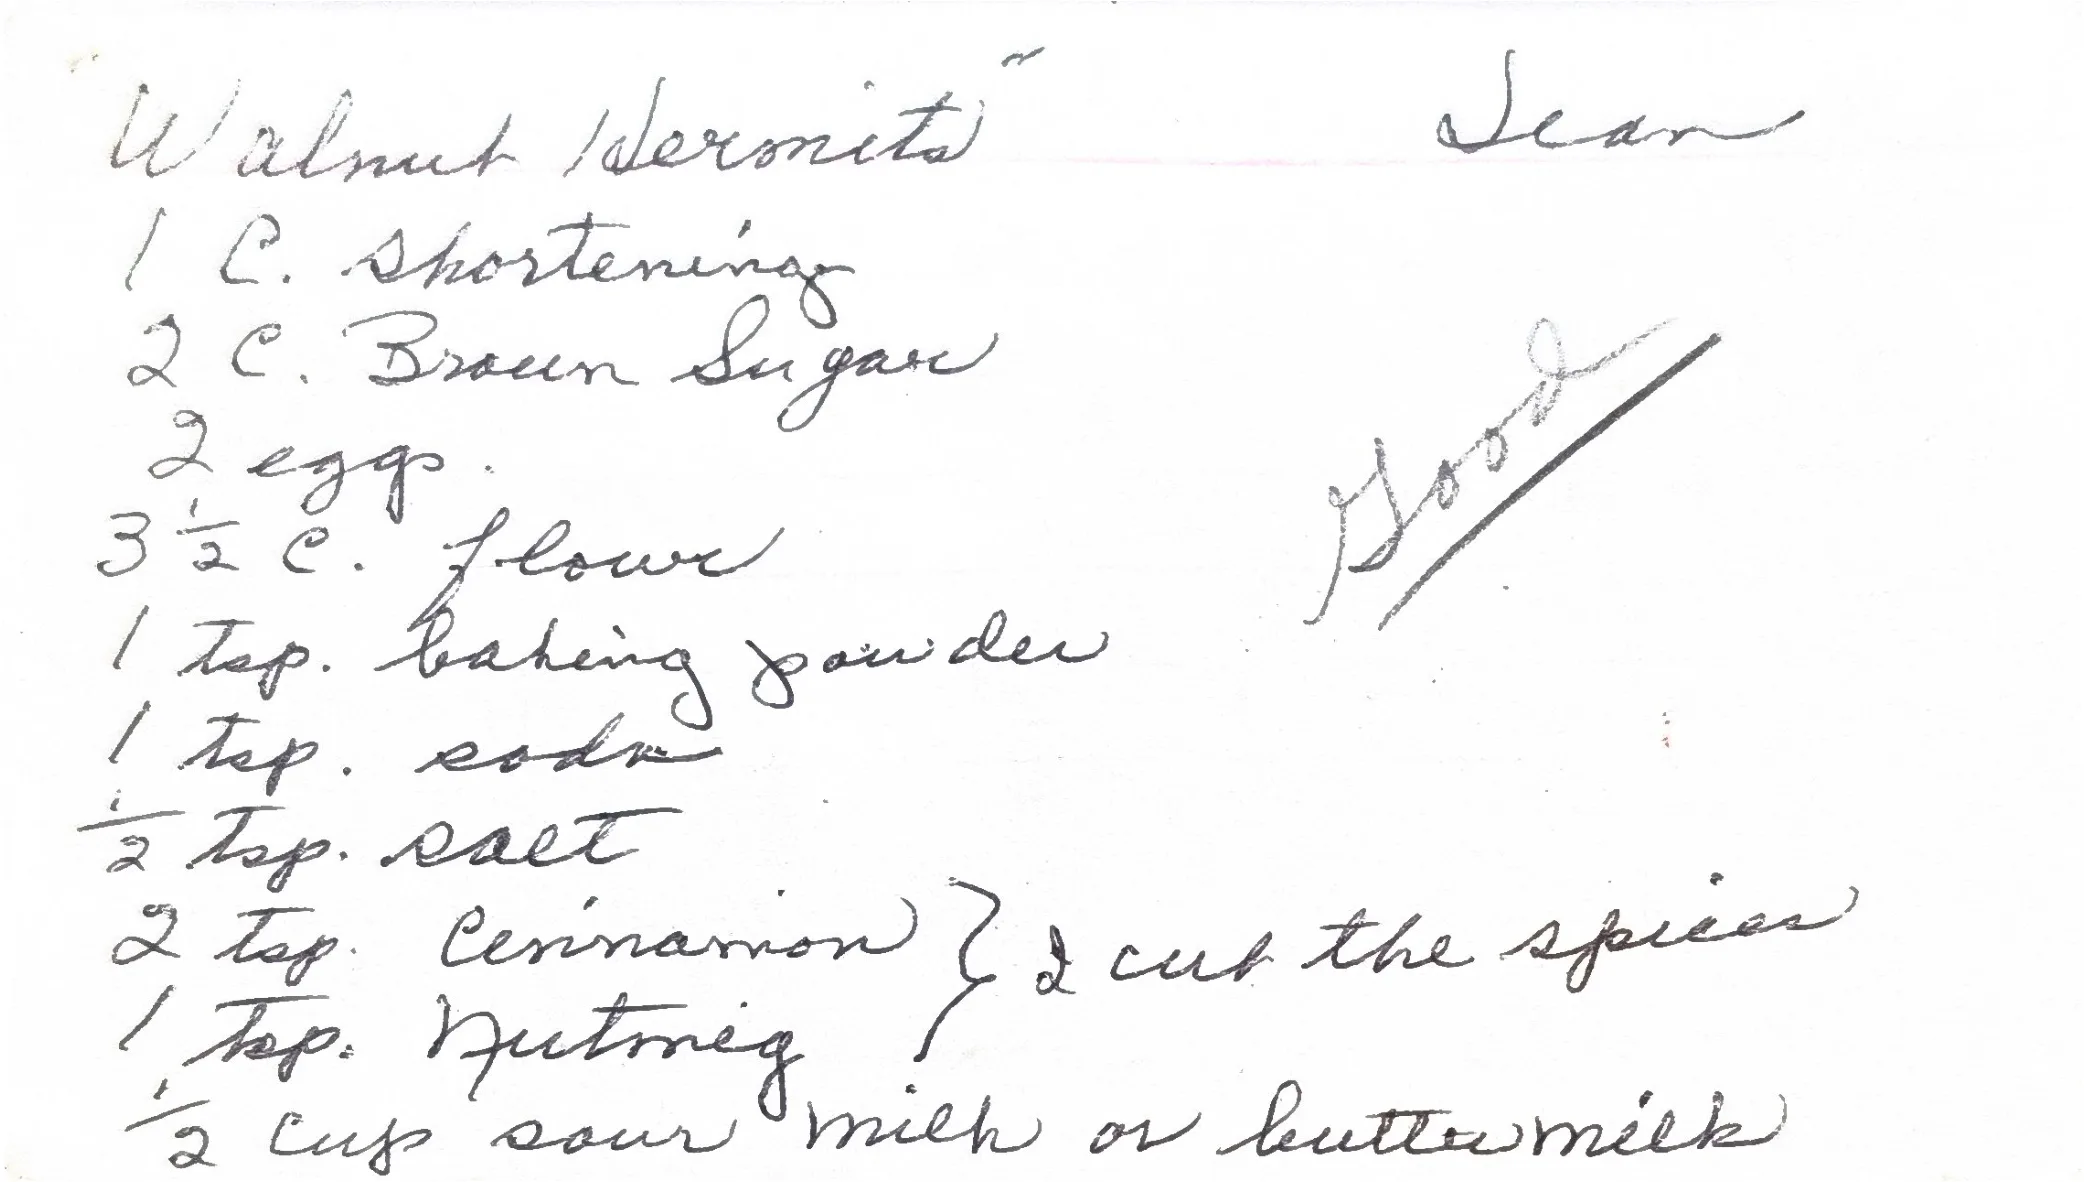 "Walnut Hermits" Jean
1 C. shortening
2 C. Brown Sugar
2 eggs.
3 1/2 C. flour
Good
1 tsp. baking powder
1 tsp. soda
1/2 tsp. salt
2 tsp. Cinnamon } I cut the spices
1 tsp. Nutmeg
1/2 cup sour milk or buttermilk